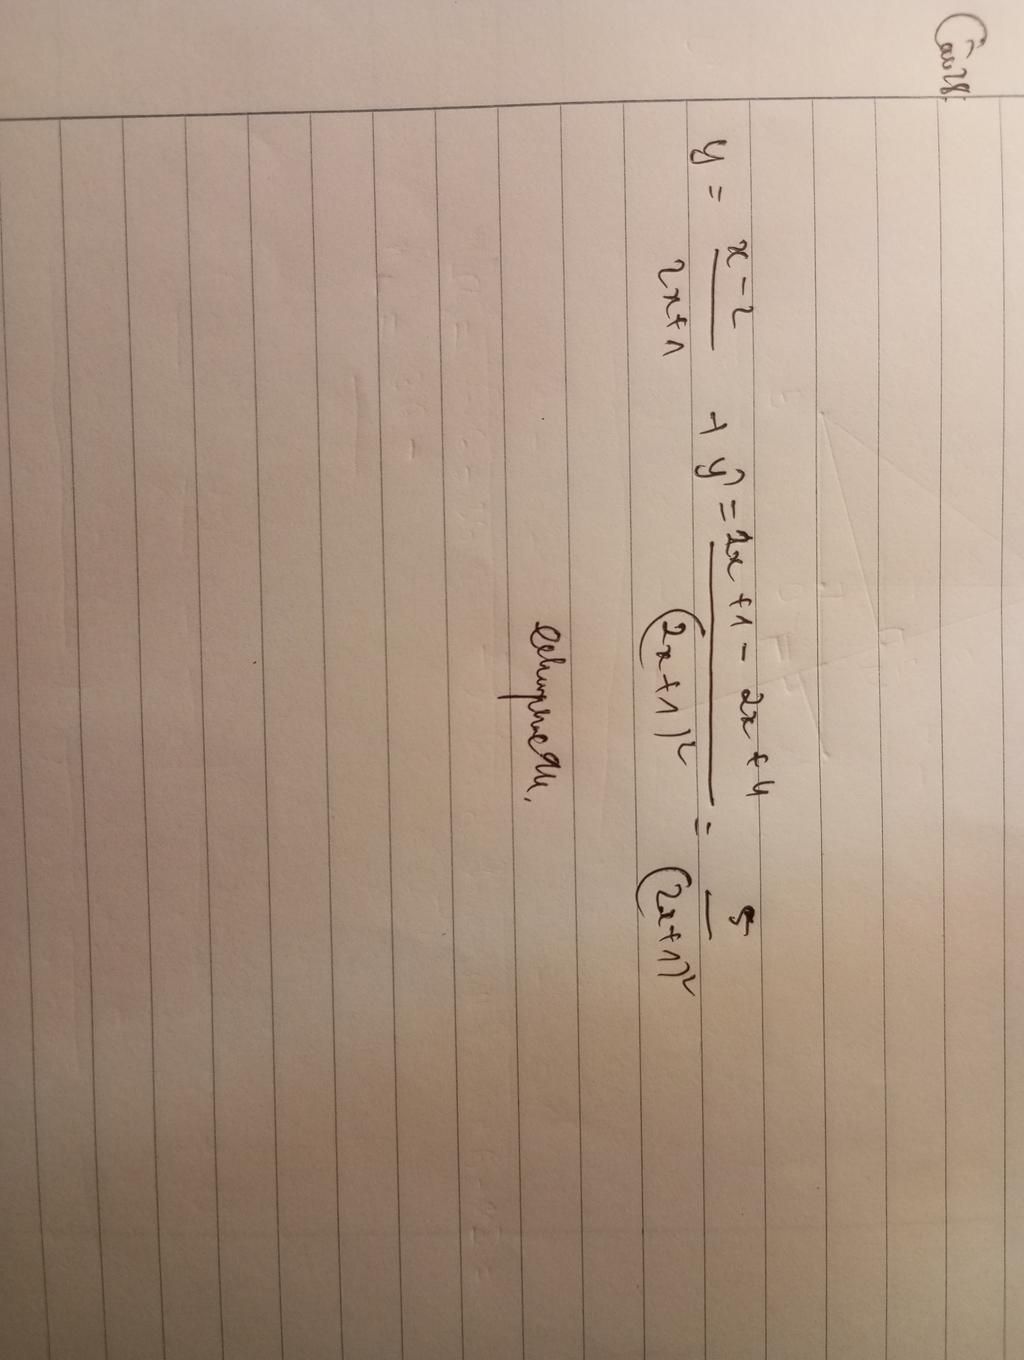 Câu 28
y = x - 2 / 2x + 1 + y' = 2x + 1 - 2x + 4 / (2x + 1)² = 5 / (2x + 1)²